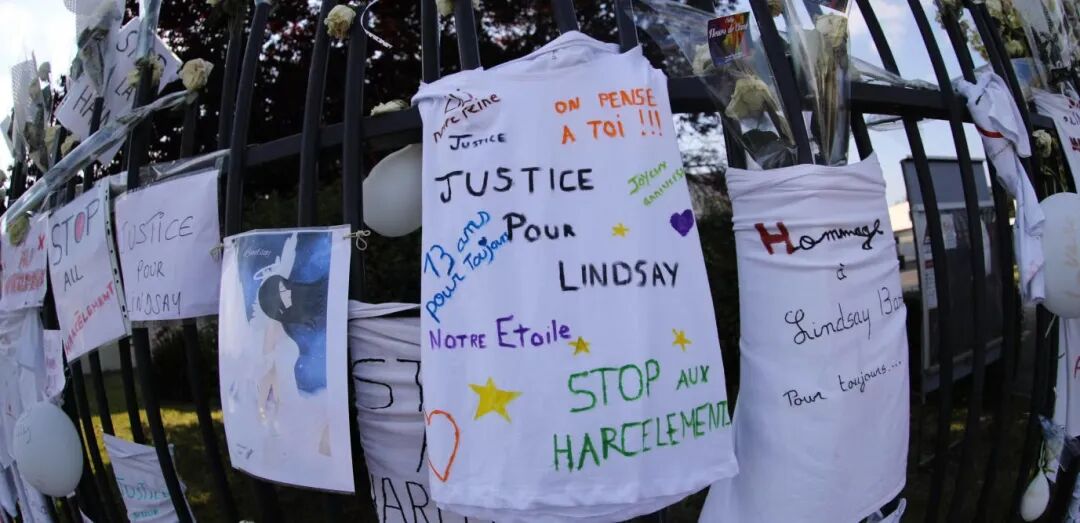 STOP
AU
HARCÈLEMENT
JUSTICE
POUR
LINDSAY
notre reine
JUSTICE
ON PENSE
A TOI !!!
JUSTICE
POUR
LINDSAY
Joyeux
anniversaire
13 ans
pour toujours
NOTRE ETOILE
STOP AUX
HARCELEMENT
Hommage
à
Lindsay
Pour toujours...
ST
HAR